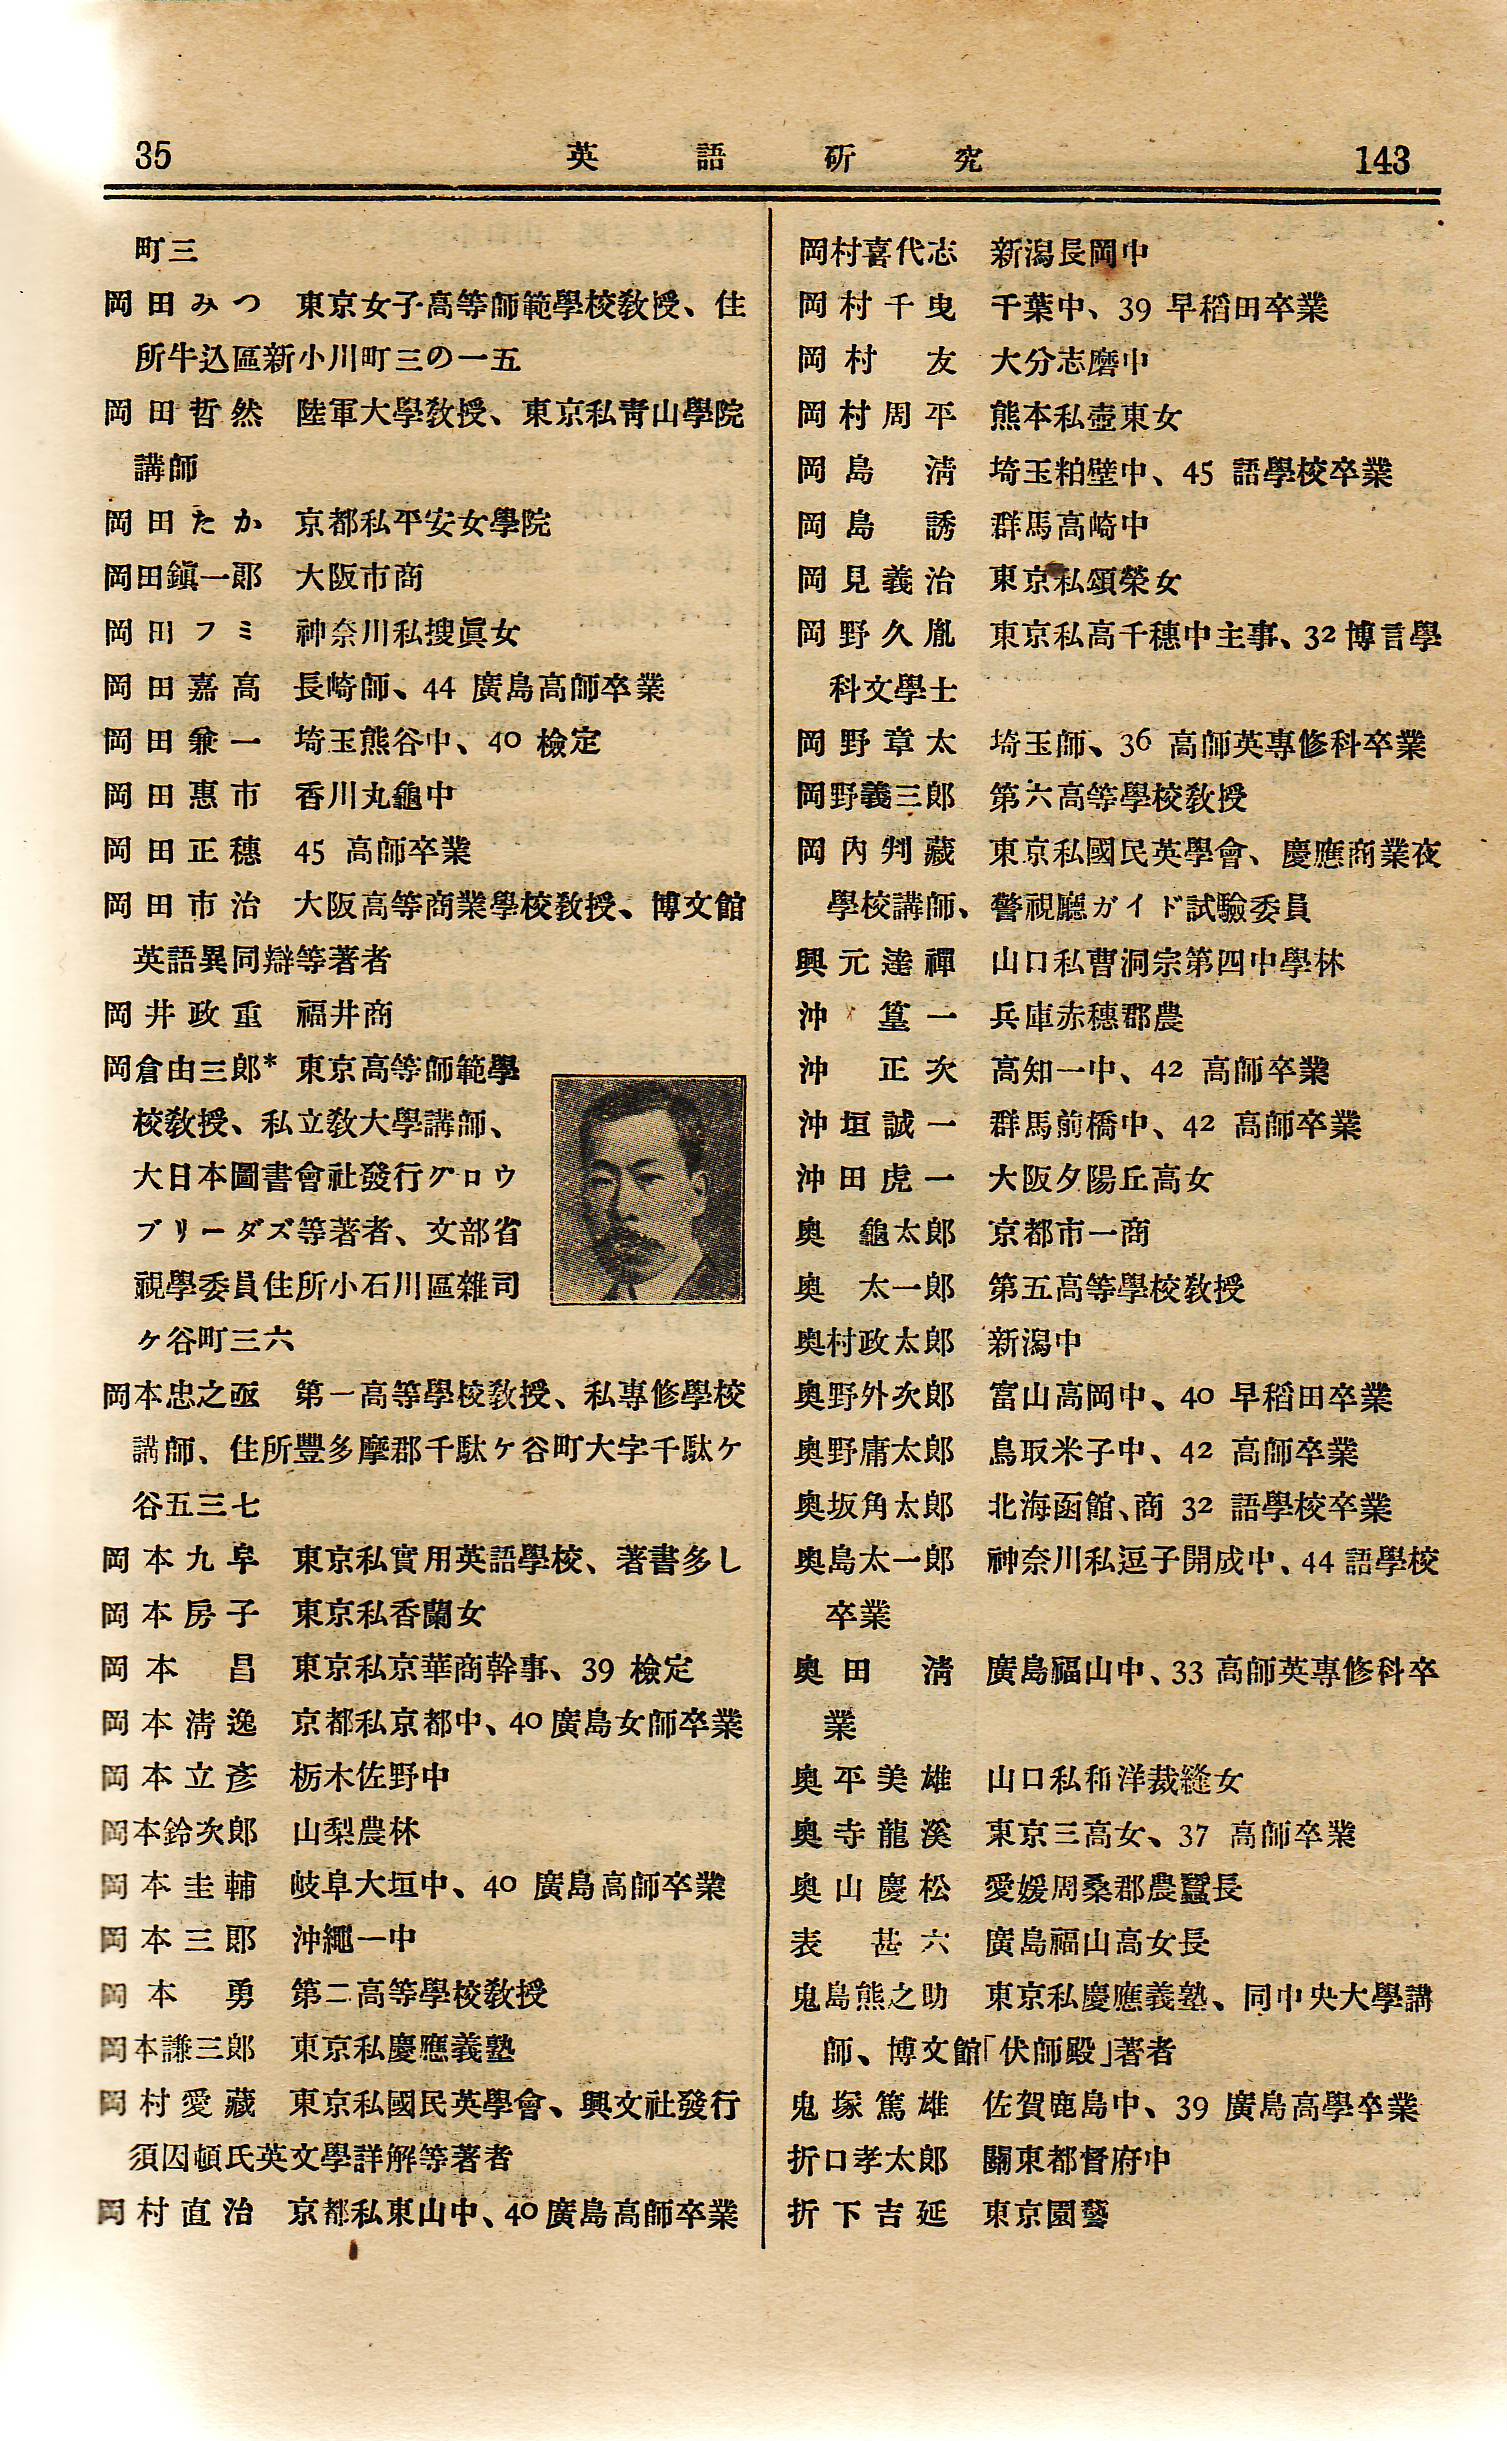 35 英語硏究 143
町三
岡田みつ 東京女子高等師範學校敎授、住
所牛込區新小川町三の一五
岡田哲然 陸軍大學敎授、東京私靑山學院
講師
岡田たか 京都私平安女學院
岡田鎭一郞 大阪市商
岡田フミ 神奈川私搜眞女
岡田嘉高 長崎師、44 廣島高師卒業
岡田兼一 埼玉熊谷中、40 檢定
岡田惠市 香川丸龜中
岡田正穗 45 高師卒業
岡田市治 大阪高等商業學校敎授、博文館
英語異同辯等著者
岡井政重 福井商
岡倉由三郞* 東京高等師範學
校敎授、私立敎大學講師、
大日本圖書會社發行グロウ
ブリーダズ等著者、文部省
視學委員住所小石川區雜司
ヶ谷町三六
岡本忠之亟 第一高等學校敎授、私專修學校
講師、住所豐多摩郡千駄ヶ谷町大字千駄ヶ
谷五三七
岡本九皐 東京私實用英語學校、著書多し
岡本房子 東京私香蘭女
岡本昌 東京私京華商幹事、39 檢定
岡本淸逸 京都私京都中、40廣島女師卒業
岡本立彥 栃木佐野中
岡本鈴次郞 山梨農林
岡本圭輔 岐阜大垣中、40 廣島高師卒業
岡本三郞 沖繩一中
岡本勇 第二高等學校敎授
岡本謙三郞 東京私慶應義塾
岡村愛藏 東京私國民英學會、興文社發行
須因頓氏英文學詳解等著者
岡村直治 京都私東山中、40廣島高師卒業
岡村喜代志 新潟長岡中
岡村千曳 千葉中、39 早稻田卒業
岡村友 大分志磨中
岡村周平 熊本私壺東女
岡島淸 埼玉粕壁中、45 語學校卒業
岡島誘 群馬高崎中
岡見義治 東京私頌榮女
岡野久胤 東京私高千穗中主事、32博言學
科文學士
岡野章太 埼玉師、36 高師英專修科卒業
岡野義三郞 第六高等學校敎授
岡內判藏 東京私國民英學會、慶應商業夜
學校講師、警視廳ガイド試驗委員
興元達禪 山口私曹洞宗第四中學林
沖篁一 兵庫赤穗郡農
沖正次 高知一中、42 高師卒業
沖垣誠一 群馬前橋中、42 高師卒業
沖田虎一 大阪夕陽丘高女
奥龜太郞 京都市一商
奥太一郞 第五高等學校敎授
奥村政太郞 新潟中
奥野外次郞 富山高岡中、40 早稻田卒業
奥野庸太郞 鳥取米子中、42 高師卒業
奥坂角太郞 北海函館、商 32 語學校卒業
奥島太一郞 神奈川私逗子開成中、44語學校
卒業
奥田淸 廣島福山中、33高師英專修科卒
業
奥平美雄 山口私和洋裁縫女
奥寺龍溪 東京三高女、37 高師卒業
奥山慶松 愛媛周桑郡農蠶長
表甚六 廣島福山高女長
鬼島熊之助 東京私慶應義塾、同中央大學講
師、博文館「伏師殿」著者
鬼塚篤雄 佐賀鹿島中、39 廣島高學卒業
折口孝太郞 關東都督府中
折下吉延 東京園藝